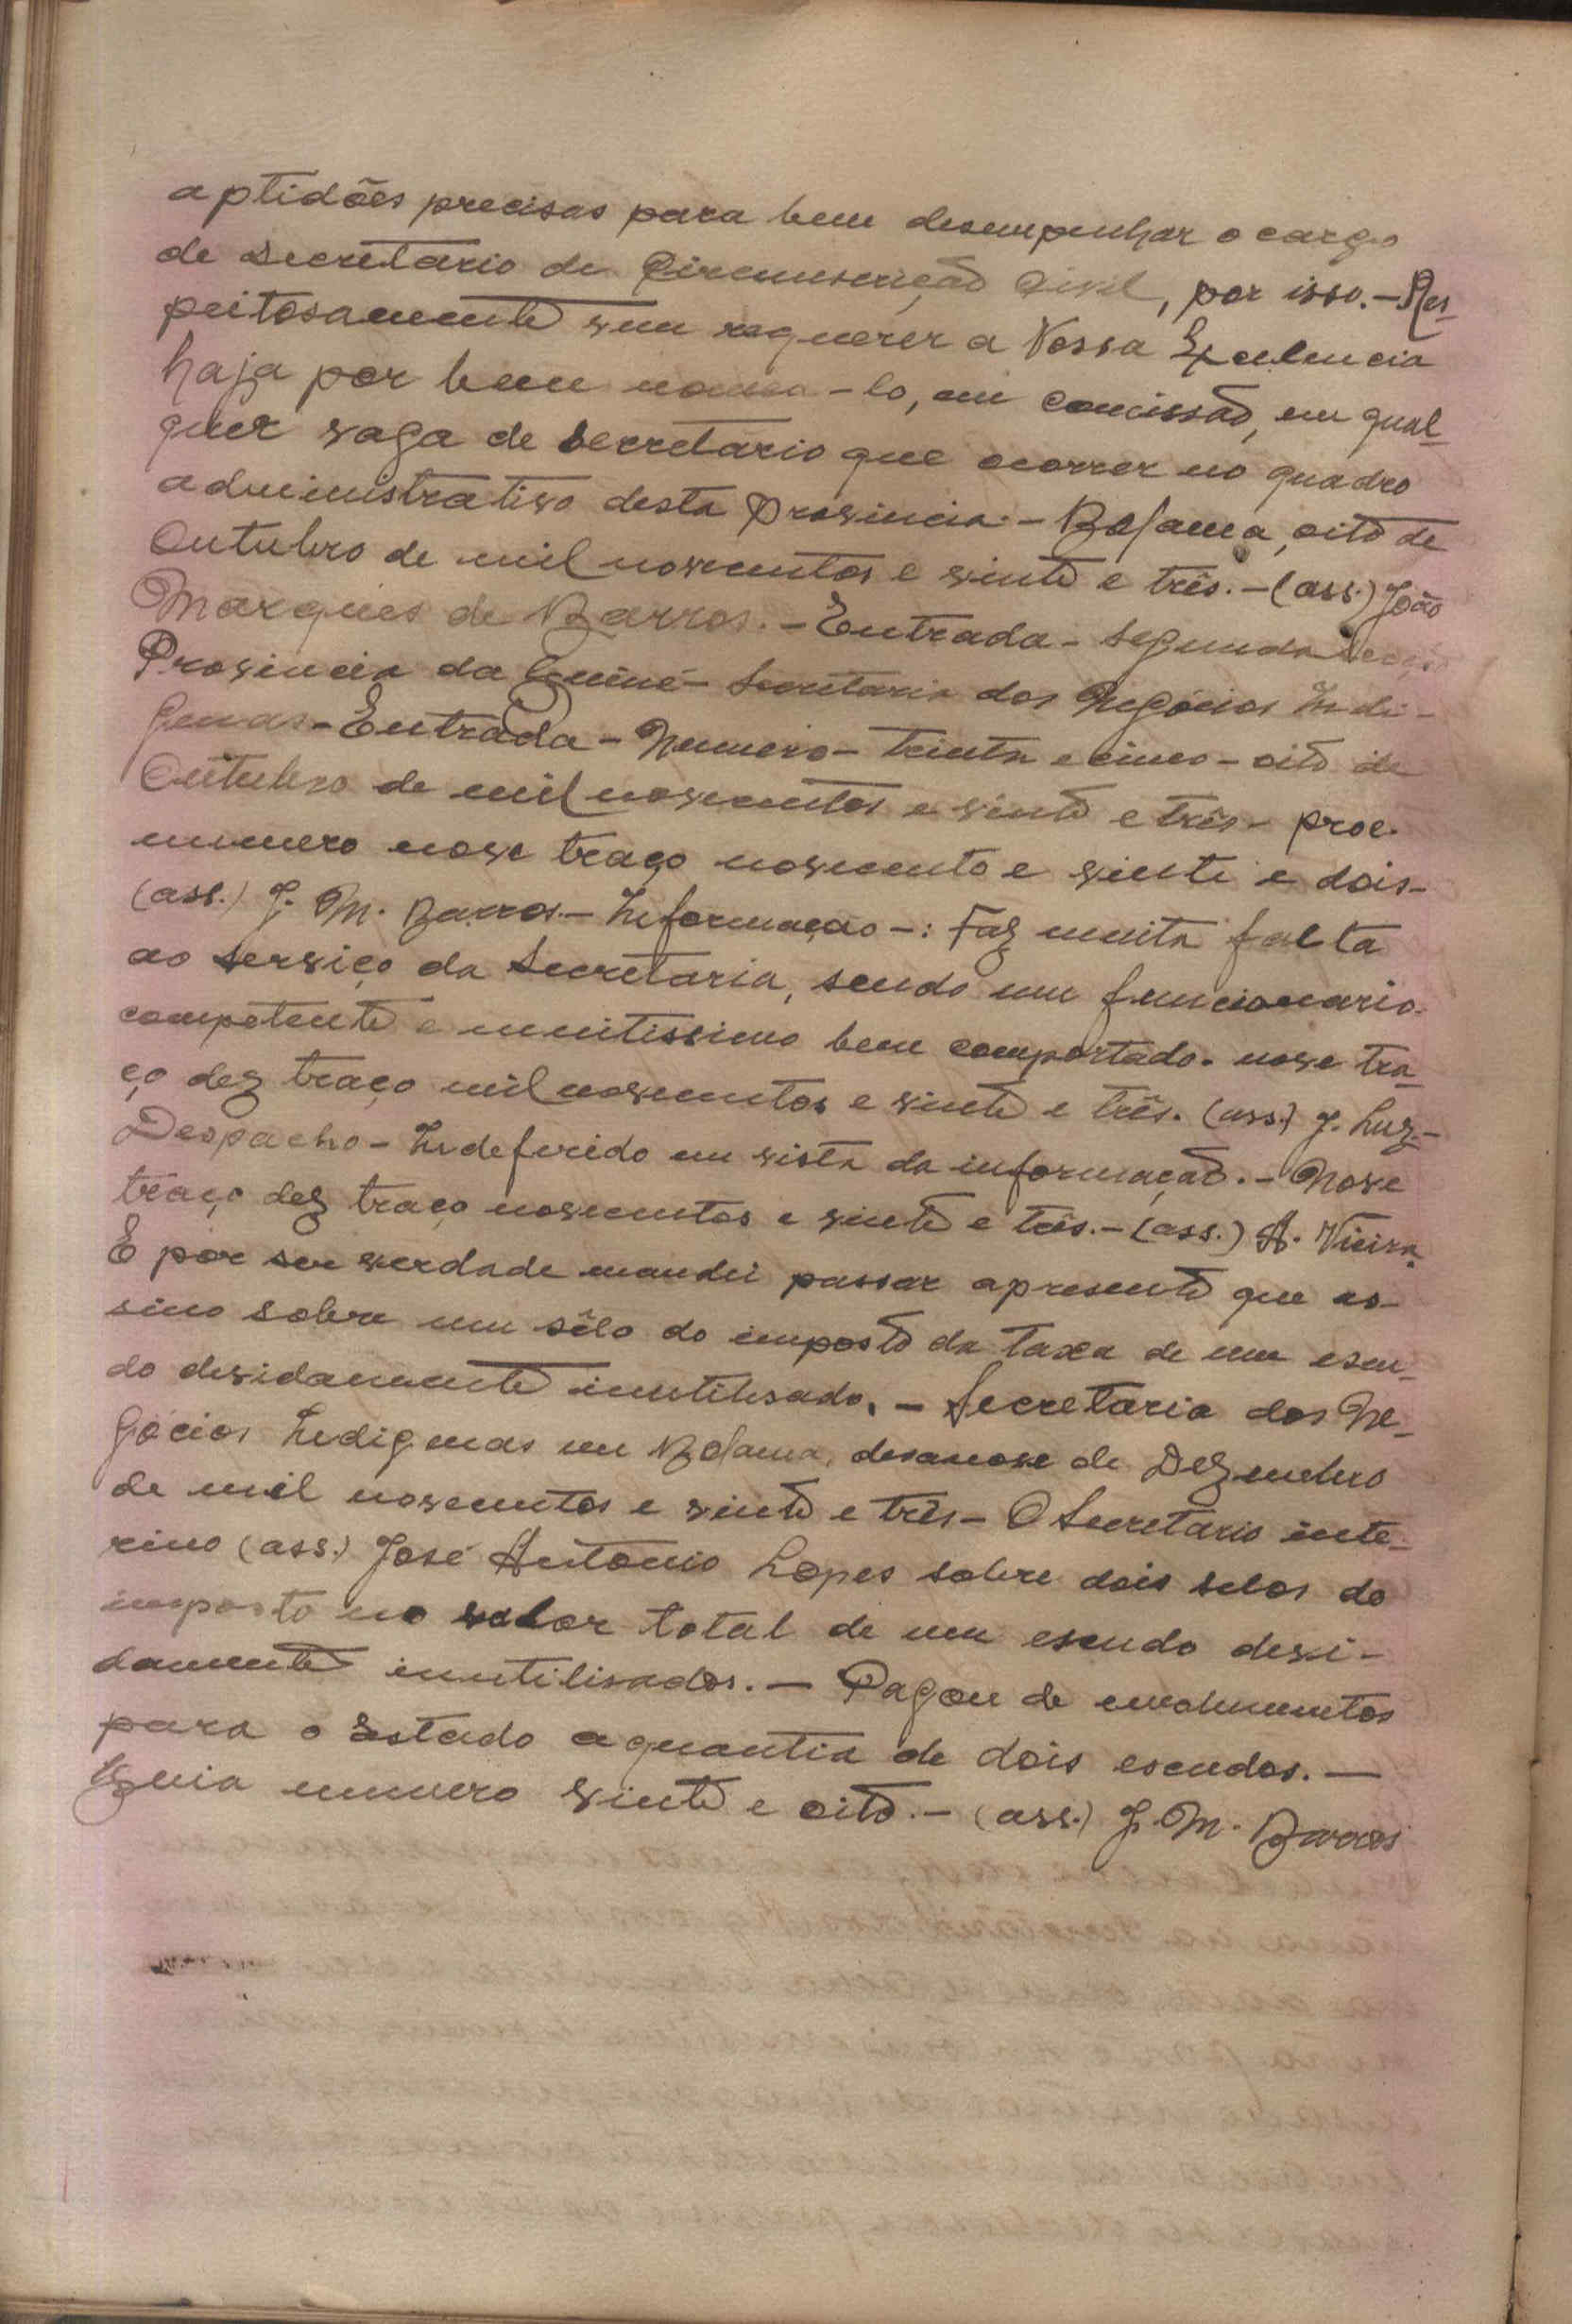 aptidões precisas para bem desempenhar o cargo
de Secretario de Circunscrição Civil, por isso.- Res-
peitosamente vem requerer a Vossa Excelencia
haja por bem nomea-lo, em comissão, em qual-
quer vaga de Secretario que ocorrer no quadro
administrativo desta Provincia.- Bolama, oito de
Outubro de mil novecentos e vinte e três.-(ass.) João
Marques de Barros.- Entrada- Segunda Secção
Provincia da Guiné- Secretaria dos Negócios Indi-
genas- Entrada- Numero- trinta e cinco- oito de
Outubro de mil novecentos e vinte e três- proc.
numero nove traço novecento e vinte e dois-
(ass.) J. M. Barros.- Informação-: Faz muita falta
ao serviço da Secretaria, sendo um funcionario
competente e muitissimo bem comportado. nove tra-
ço dez traço mil novecentos e vinte e três. (ass.) J. Luz.-
Despacho- Indeferido em vista da informação.- Nove
traço dez traço novecentos e vinte e três.-(ass.) A. Vieira.
E por ser verdade mandei passar apresente que as-
sino sobre um sêlo do imposto da taxa de um escu-
do devidamente inutilisado.- Secretaria dos Ne-
gócios Indigenas em Bolama, desanove de Dezembro
de mil novecentos e vinte e três- O Secretário inte-
rino (ass.) José António Lopes sobre dois selos do
imposto no valor total de um escudo devi-
damente inutilisados.- Pagou de emolumentos
para o Estado aquantia de dois escudos.-
Guia numero vinte e oito.- (ass.) J. M. Barros